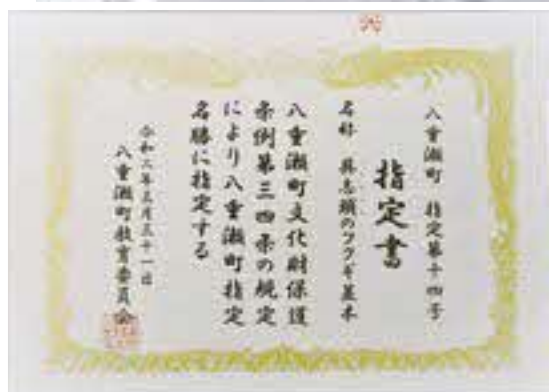 八重瀬町 指定第十四号
指定書
名称 具志頭のフクギ並木
八重瀬町文化財保護
条例第三四条の規定
により八重瀬町指定
名勝に指定する
令和 年三月三十一日
八重瀬町教育委員会